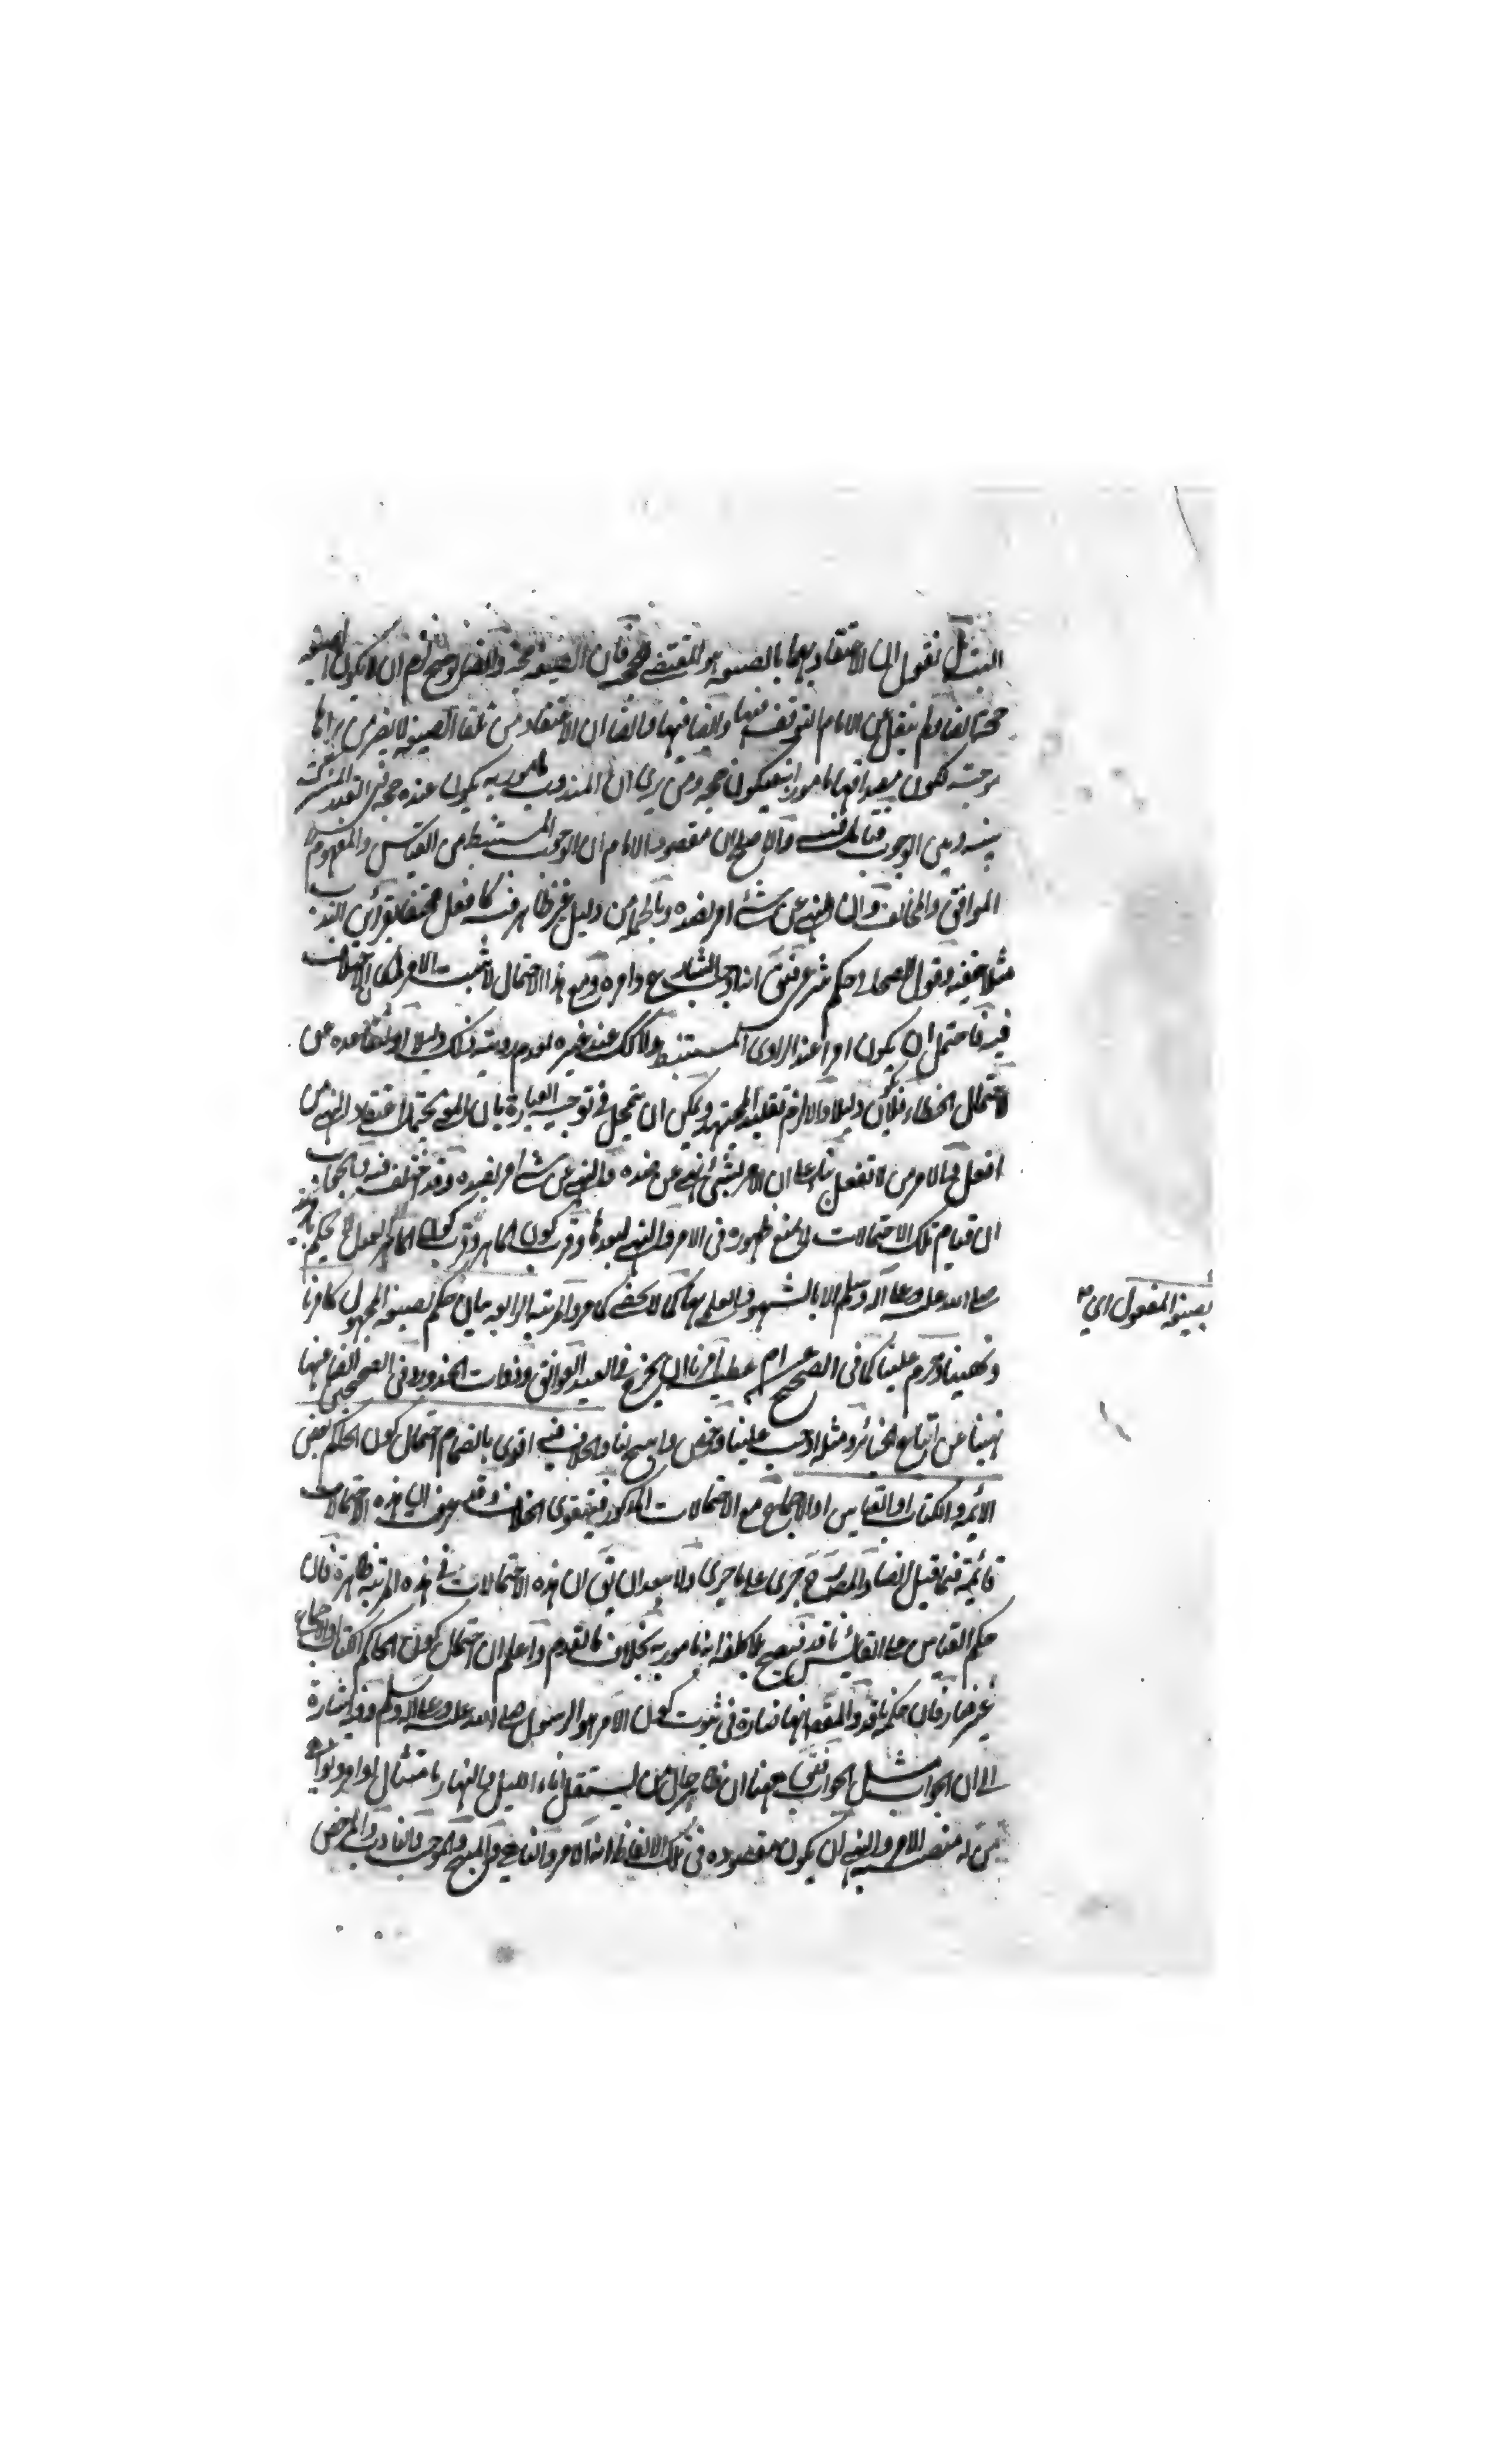 نقول ان الاعتقاد بهما بالصيغة هو المقتضى فان الصيغة حجة وايضا لو صح لزم ان لا يكون الصيغة
حجة ايضا ولم ينقل عن الامام التوقف فيها وايضا ان الاعتقاد من تلقاء الصيغة لا يضر من يراها
فيكون حجة ومن يرى ان المندوب مامور به يكون عنده حجة في القدر المشترك
بينه وبين الوجوب فتأمل فيه والاصلح ان مقصود الامام ان الوجوب المستنبط من القياس والمفهوم
الموافق والمخالف وان النهي عن شئ امر بضده وبالجملة من دليل غير ظاهر فيه كافعل محتفا بقرائن الندب
مثلا خفية وقول الصحابي حكم شرعي انه اوجب الشارع وامره ومع هذا الاحتمال لا يثبت الامر لمكان الاختلاف
فيه فاحتمل ان يكون امرا عند الراوي المستنبط ولا كك عند غيره لعدم روية ذلك دليلا او
لاحتمال الخطاء فلا يكون دليلا والا لزم تقليد المجتهد ويمكن ان يتمحل في توجيه العبارة بان المعنى يحتمل اعتقاد النهي من
افعل والامر من لا تفعل بناء على ان الامر بشئ نهي عن ضده والنهي عن شئ امر بضده وقد اختلف فيه والجواب
ان قيام تلك الاحتمالات لا يمنع ظهوره في الامر والنهي لبعدها
صلى الله عليه وعلى آله وسلم الا بالشهود والعلم بها كما لا يخفى كما مر والمرتبة الرابعة بيان حكم بصيغة المجهول كامرنا
ونهينا وحرم علينا كما في الصحيح عن ام عطية امرنا ان نخرج في العيد العواتق وذوات الخدور وفي الصحيحين ايضا عنها
نهينا عن اتباع الجنائز ومثله اوجب علينا ورخص وابيح لنا والخلاف فيه اقوى بانضمام احتمال كون الحاكم بعض
الائمة والكتاب او القياس او الاجماع مع الاحتمالات المذكورة فيقوى الخلاف وقد عرفت ان هذه الاحتمالات
قائمة فيما قبل ايضا والمصرح جرى على ما جرى ولا يبعد ان يق ان هذه الاحتمالات في هذه المرتبة ظاهرة فان
حكم القياس على القائس نافذ فيصح بلا كلفة انه مامور به بخلاف ما تقدم واعلم ان احتمال كون الحاكم الكتاب والاجماع
غير ضار فان حكمه نافذ والمقصد انها ضارة في ثبوت كون الآمر هو الرسول صلى الله عليه وعلى آله وسلم وفيه اشارة
الى ان الجواب مثل الجواب يعني ههنا ان ظاهر حال من يستقل اناء الليل والنهار بامتثال اوامر ونواهي
من له منصب الامر والنهي ان يكون مقصوده في تلك الالفاظ انه الآمر والناهي والمبيح والموجب والنادب والمرخص
بصيغة المفعول اي